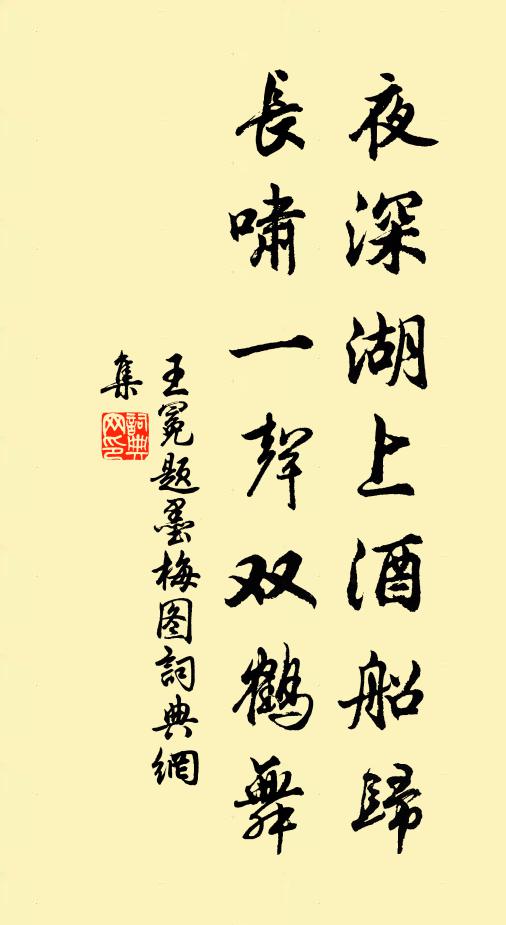 夜深湖上酒船歸
長嘯一聲双鶴舞
王冕题墨梅图詞典網
集
詞典
网印